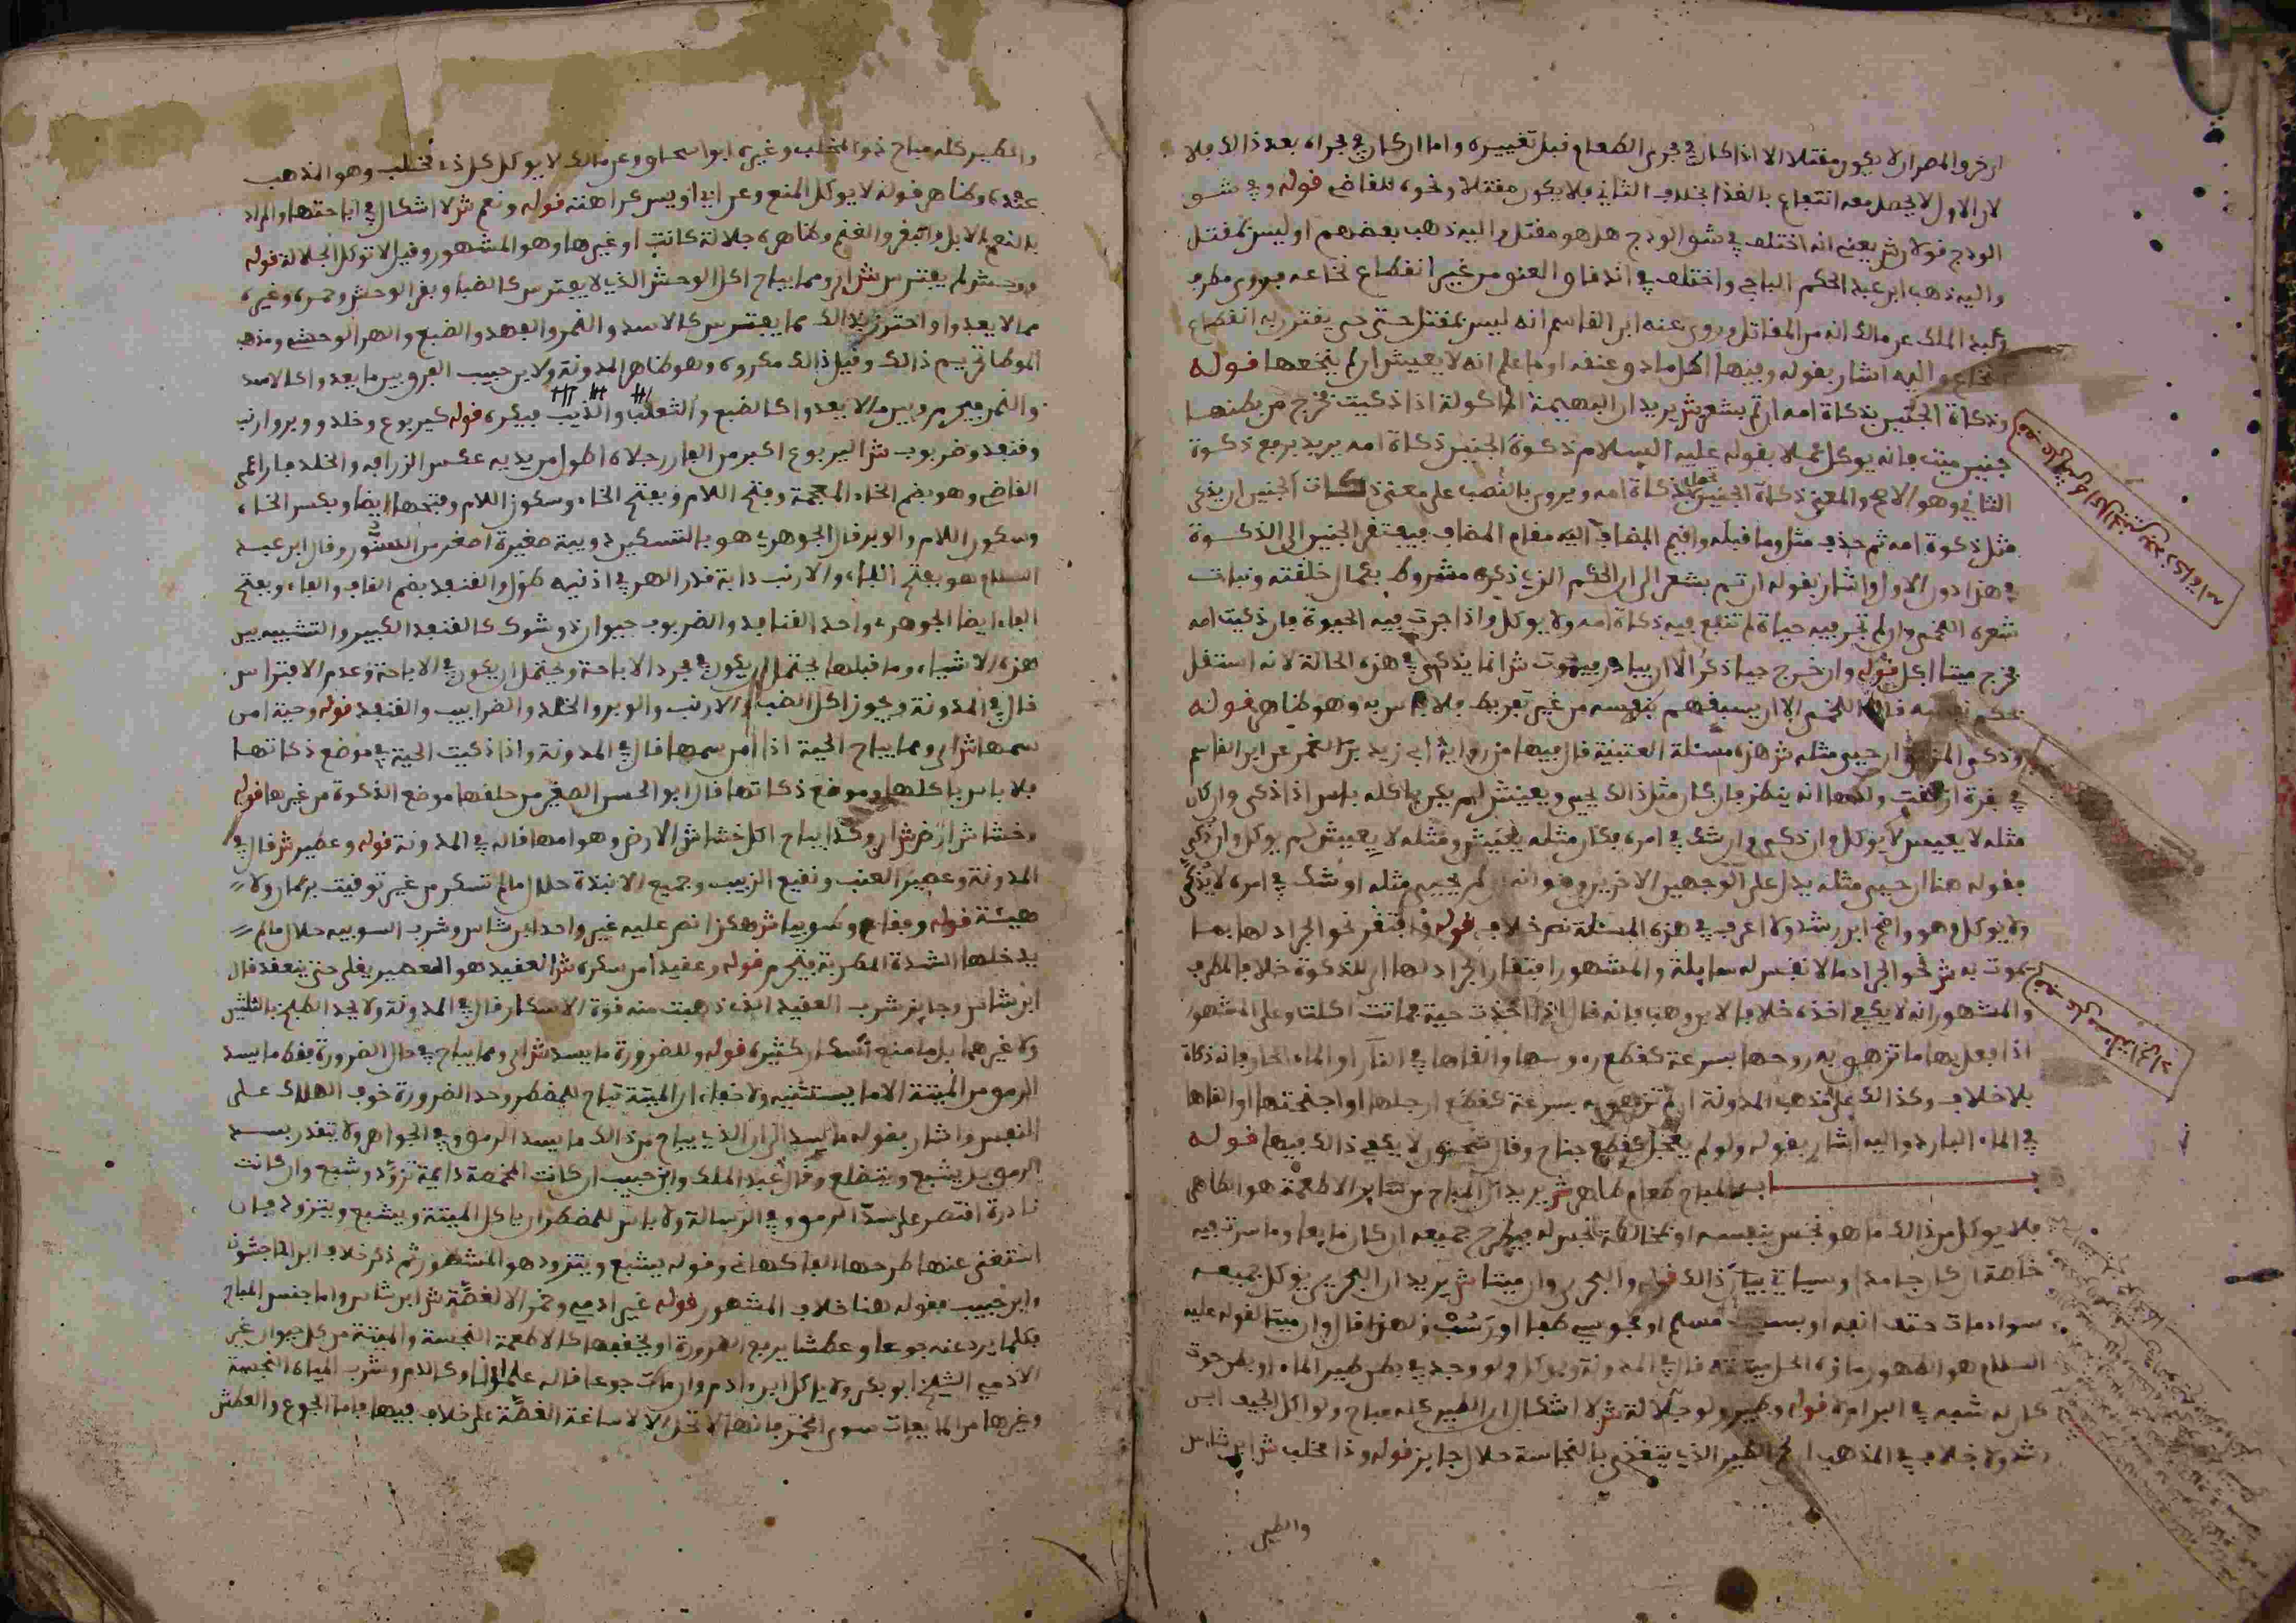 ان خرو المصران لا يكون مقتلا الا اذا كان في مجرى الطعام قبل تغييره واما ان كان في مجراه بعد ذالك فلا
لان الاول لا يحصل معه انتفاع بالغذا بخلاف الثاني فلا يكون مقتلا ونحوه للقاضي قوله وفي شق
الودج قولان ش يعني انه اختلف في شق الودج هل هو مقتل واليه ذهب بعضهم او ليس بمقتل
واليه ذهب ابن عبد الحكم الباجي واختلف في اندقاق العنق من غير انقطاع نخاعه فروى مطرف
وعبد الملك عن مالك انه من المقاتل وروى عنه ابن القاسم انه ليس بمقتل حتى يقترن به انقطاع
النخاع واليه اشار بقوله وفيها اكل ما دق عنقه او ما علم انه لا يعيش ان لم ينخعها قوله
وذكاة الجنين بذكاة امه ان تم بشعر ش يريد ان البهيمة الماكولة اذا ذكيت فخرج من بطنها
جنين ميت فانه يوكل عملا بقوله عليه السلام ذكوة الجنين ذكاة امه يريد برفع ذكوة
الثاني وهو الاصح والمعنى ذكاة الجنين ذكاة امه ويروى بالنصب على معنى ذكات الجنين ان يذكى
مثل ذكوة امه ثم حذف مثل وما قبله واقيم المضاف اليه مقام المضاف فيفتقر الجنين الى الذكوة
في هذا دون الاول واشار بقوله ان تم بشعر الى ان الحكم الذي ذكره مشروط بكمال خلقته ونبات
شعره اللخمي وان لم تجر فيه حياة لم تنفع فيه ذكاة امه ولا يوكل واذا جرت فيه الحيوة فان ذكيت امه
فخرج ميتا اكل قوله وان خرج حيا ذكي الا ان يبادر فيفوت ش انما يذكى في هذه الحالة لانه استقل
بحكم نفسه قال اللخمي الا ان يسبقهم بنفسه من غير تفريط فلا باس به وهو ظاهر قوله
وذكي المزلق ان حيي مثله ش هذه مسئلة العتبية قال فيها من رواية ابي زيد بن ابي الغمر عن ابن القاسم
في بقرة ازلقت ولدها انه ينظر فان كان مثل ذالك يحيى ويعيش لم يكن باكله باس اذا ذكي وان كان
مثله لا يعيش لا يوكل وان ذكي وان شك في امره فكان مثله يعيش ومثله لا يعيش لم يوكل وان ذكي
فقوله هنا ان حيي مثله يدل على الوجهين الاخيرين وهو انه ان لم يحيى مثله او شك في امره لا يذكى
ولا يوكل وهو واضح ابن رشد ولا اعرف في هذه المسئلة نص خلاف قوله وافتقر نحو الجراد لها بما
يموت به ش نحو الجراد ما لا نفس له سايلة والمشهور افتقار الجراد لها اي للذكوة خلافا لمطرف
والمشهور انه لا يكفي اخذه خلافا لابن وهب فانه قال اذا اخذت حية فماتت اكلت وعلى المشهور
اذا فعل بها ما تزهق به روحها بسرعة كقطع رءوسها والقاها في النار او الماء الحار فانه ذكاة
بلا خلاف وكذالك على مذهب المدونة ان لم تزهق به بسرعة كقطع ارجلها او اجنحتها او القاها
في الماء البارد واليه اشار بقوله ولو لم يعجل كقطع جناح وقال سحنون لا يكفي ذالك فيها قوله
باب المباح طعام طاهر ش يريد ان المباح من ساير الاطعمة هو الطاهر
فلا يوكل من ذالك ما هو نجس بنفسه او بمخالطة نجس له فيطرح جميعه ان كان مايعا وما سرت فيه
خاصة ان كان جامدا وسياتي بيان ذالك قوله والبحري وان ميتا ش يريد ان البحري يوكل جميعه
سواء مات حتف انفه او بسبب مسلم او مجوسي طفا او رسب ولهذا قال وان ميتا لقوله عليه
السلام هو الطهور ماؤه الحل ميتته قال في المدونة ويوكل ولو وجد في بطن طير الماء او بطن حوت
كان له شبه في البر ام لا قوله وطير ولو جلالة ش لا اشكال ان الطير كله مباح ولو اكل الجيف ابن
رشد ولا خلاف في المذهب ان الطير الذي يتغذى بالنجاسة حلال جايز قوله وذا مخلب ش ابن شاس
والطير
والطير كله مباح ذو المخلب وغيره ابو اسحاق وعن مالك لا يوكل كل ذي مخلب وهو المذهب
عنده وظاهر قوله لا يوكل المنع وعن ابن ابي اويس كراهته قوله ونعم ش لا اشكال في اباحتها والمراد
بالنعم الابل والبقر والغنم وظاهره جلالة كانت او غيرها وهو المشهور وقيل لا توكل الجلالة قوله
ووحش لم يفترس ش اي ومما يباح اكل الوحش الذي لا يفترس كالضبا وبقر الوحش وحمره وغيره
مما لا يعدوا واحترز بذالك مما يفترس كالاسد والنمر والفهد والضبع والهر الوحشي ومذهب
الموطا تحريم ذالك وقيل ذالك مكروه وهو ظاهر المدونة ولابن حبيب الفرق بين ما يعدوا كالاسد
والنمر فيحرم وبين ما لا يعدوا كالضبع والثعلب والذيب فيكره قوله كيربوع وخلد ووبر وارنب
وقنفد وضربوب ش اليربوع اكبر من الفار رجلاه اطول من يديه عكس الزرافه والخلد فار اعمى
القاضي وهو بضم الخاء المعجمة وفتح اللام وبفتح الخاء وسكون اللام وفتحها ايضا وبكسر الخاء
وسكون اللام والوبر قال الجوهري هو بالتسكين دويبة صغيرة اصغر من السنور وقال ابن عبد
السلام هو بفتح الباء والارنب دابة قدر الهر في اذنيه طول والقنفد بضم القاف والفاء وبفتح
الفاء ايضا الجوهري واحد القنافد والضربوب حيوان ذو شوك كالقنفد الكبير والتشبيه بين
هذه الاشياء وما قبلها يحتمل ان يكون في مجرد الاباحة ويحتمل ان يكون في الاباحة وعدم الافتراس
قال في المدونة ويجوز اكل الضب والارنب والوبر والخلد والضرابيب والقنفد قوله وحية امن
سمها ش اي ومما يباح الحية اذا امن سمها قال في المدونة واذا ذكيت الحية في موضع ذكاتها
فلا باس باكلها وموضع ذكاتها قال ابو الحسن الصغير من حلقها موضع الذكوة من غيرها قوله
وخشاش ارض ش اي وكذا يباح اكل خشاش الارض وهوامها قاله في المدونة قوله وعصير ش قال في
المدونة وعصير العنب ونقيع الزبيب وجميع الانبذة حلال ما لم تسكر من غير توقيت بزمان ولا
هيئة قوله وفقاع وسوبيا ش هكذا نص عليه غير واحد ابن شاس وشرب السوبيه حلال ما لم
يدخلها الشدة المطربة فيحرم قوله وعقيد امن سكره ش العقيد هو العصير يغلى حتى ينعقد قال
ابن شاس وجايز شرب العقيد الذي ذهبت منه قوة الاسكار قال في المدونة ولا يحد الطبخ بالثلثين
ولا غيرهما بل ما منع اسكار كثيره قوله وللضرورة ما يسد ش اي ومما يباح في حال الضرورة فقط ما يسد
الرمق من الميتة الا ما يستثنيه ولا خفاء ان الميتة تباح للمضطر وحد الضرورة خوف الهلاك على
النفس واشار بقوله ما يسد الى ان الذي يباح من ذالك ما يسد الرمق وفي الجواهر ولا يتقدر بسد
الرمق بل يشبع ويتضلع وقال عبد الملك وابن حبيب ان كانت المخمصة دايمة تزود وشبع وان كانت
نادرة اقتصر على سد الرمق وفي الرسالة ولا باس للمضطر ان ياكل الميتة ويشبع ويتزود فان
استغنى عنها طرحها الفاكهاني وقوله يشبع ويتزود هو المشهور ثم ذكر خلاف ابن الماجشون
وابن حبيب فقوله هنا خلاف المشهور قوله غير ادمي وخمر الا لغصة ش ابن شاس واما جنس المباح
فكلما يرد عنه جوعا وعطشا يرفع الضرورة او يخففها كالاطعمة النجسة والميتة من كل حيوان غير
الادمي الشيخ ابو بكر ولا ياكل ابن ءادم وان مات جوعا قاله علماؤنا وكالدم وشرب المياه النجسة
وغيرها من المايعات سوى الخمر فانها لا تحل الا لاساغة الغصة على خلاف فيها فاما الجوع والعطش